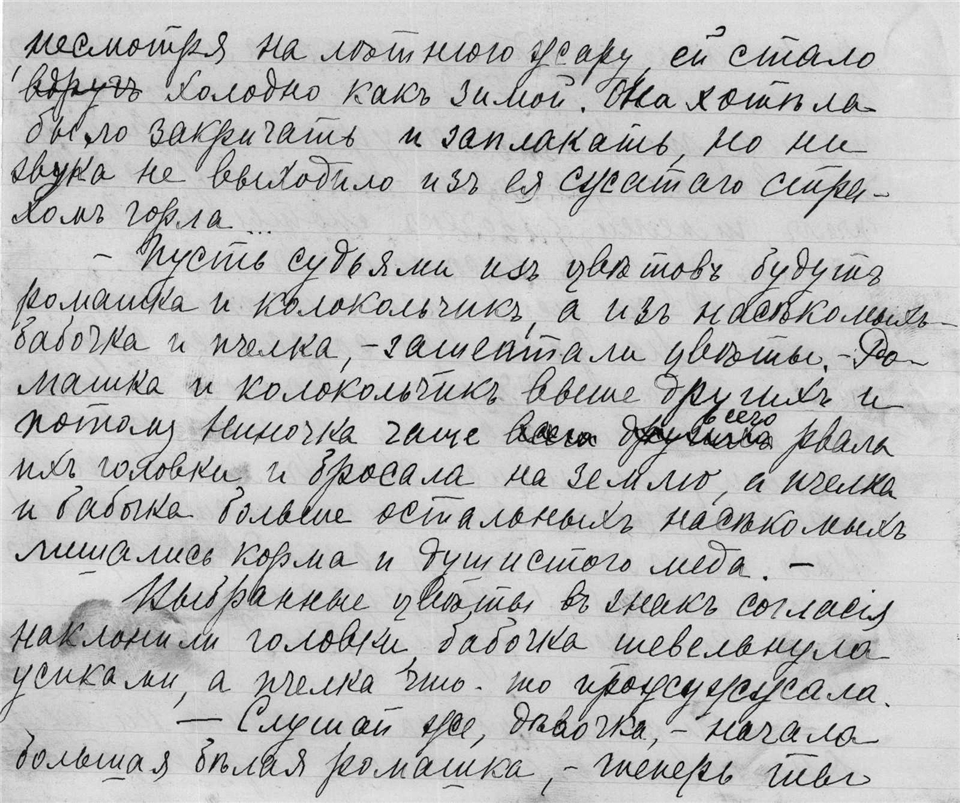 несмотря на лѣтнюю жару, ей стало
вдругъ холодно какъ зимой. Она хотѣла
было закричать и заплакать, но ни
звука не выходило изъ ея сжатаго стра-
хомъ горла...
– Пусть судьями изъ цвѣтовъ будутъ
ромашка и колокольчикъ, а изъ насѣкомыхъ –
бабочка и пчелка, – зашептали цвѣты. – Ро-
машка и колокольчикъ выше другихъ и
потому Ниночка чаще всего рвала
ихъ головки и бросала на землю, а пчелка
и бабочка больше остальныхъ насѣкомыхъ
лишались корма и душистого меда. –
Выбранные цвѣты въ знакъ согласія
наклонили головки, бабочка шевельнула
усиками, а пчелка что-то прожужжала.
– Слушай же, дѣвочка, – начала
большая бѣлая ромашка, – теперь ты